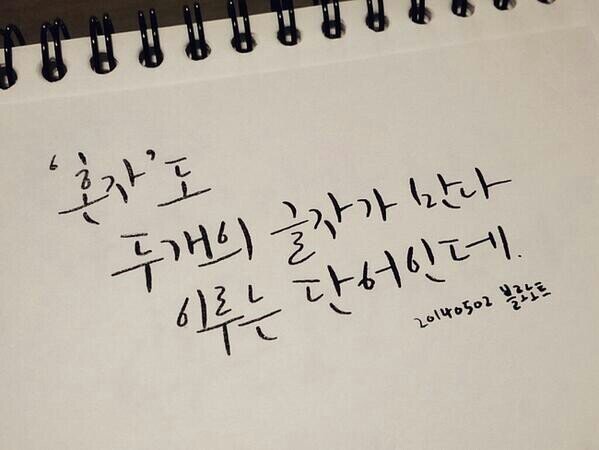 '혼자'도
두개의 글자가 만나
이루는 단어인데.
20140502 블랙노트